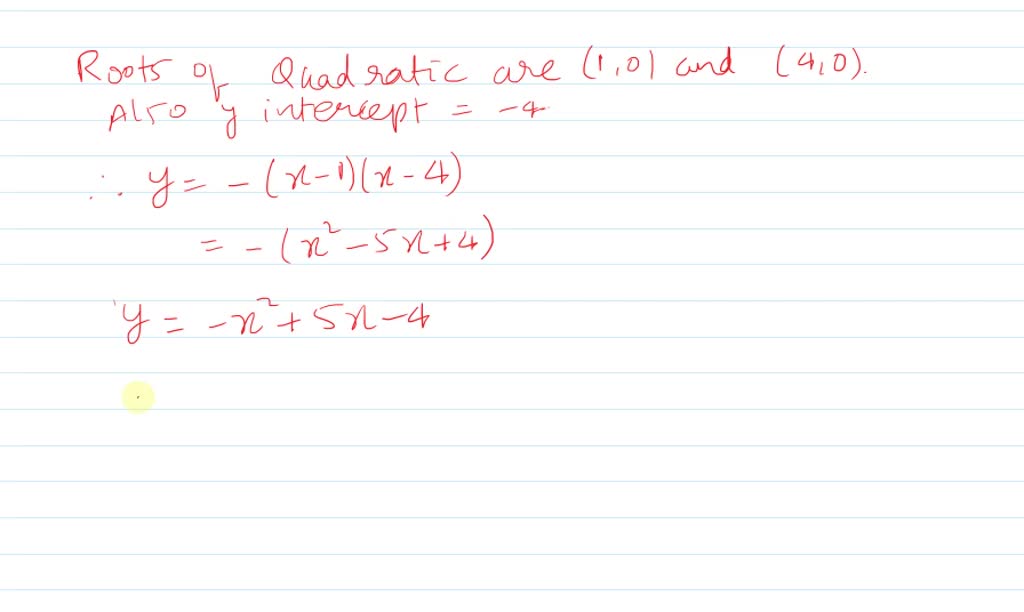 Roots of Quadratic are (1,0) and (4,0).
Also y intercept = -4
∴ y = -(x-1)(x-4)
= -(x²-5x+4)
y = -x²+5x-4